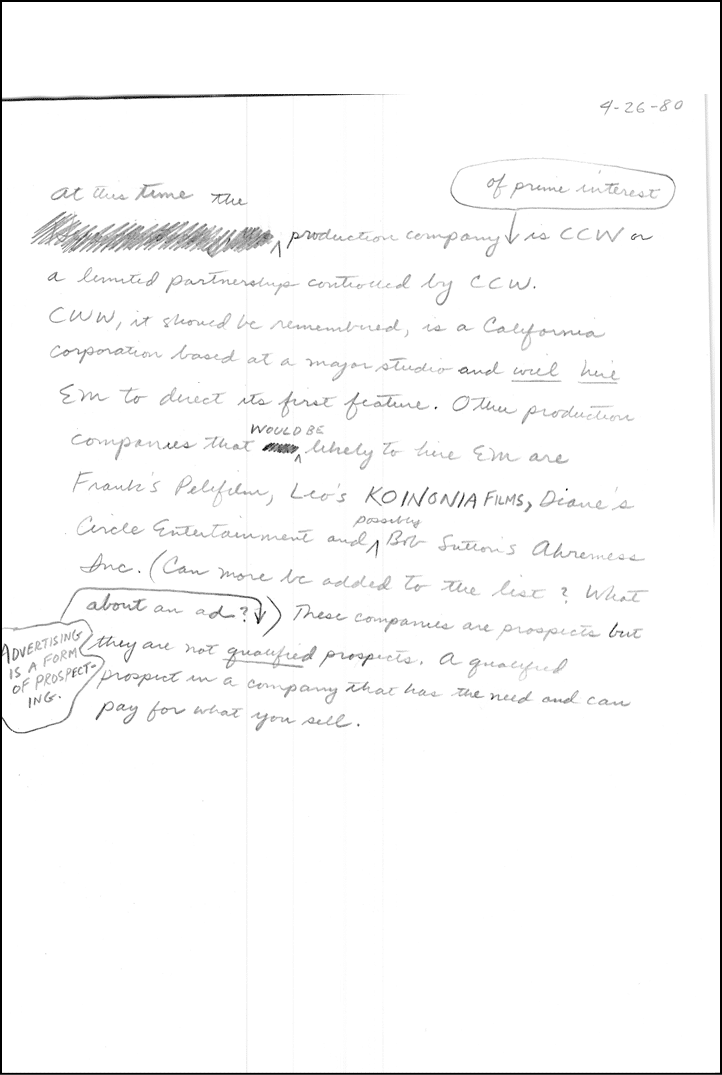 4-26-80
of prime interest
At this time the
production company is CCW or
a limited partnership controlled by CCW.
CWW, it should be remembered, is a California
corporation based at a major studio and will hire
EM to direct its first feature. Other production
WOULD BE
companies that likely to hire EM are
Frank's Pelifilm, Leo's KOINONIA FILMS, Diane's
possibly
Circle Entertainment and Bob Sutton's
Inc. (Can more be added to the list? What
about an ad?) These companies are prospects but
ADVERTISING
IS A FORM
OF PROSPECT-
ING.
they are not qualified prospects. A qualified
prospect in a company that has the need and can
pay for what you sell.